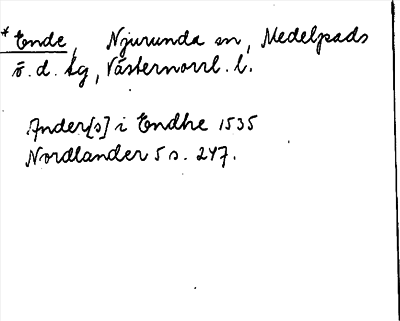 *Ende, Njurunda sn, Medelpads
ö. d. tg, Västernorrl. l.
Ander[s] i Endhe 1535
Nordlander 5 s. 247.